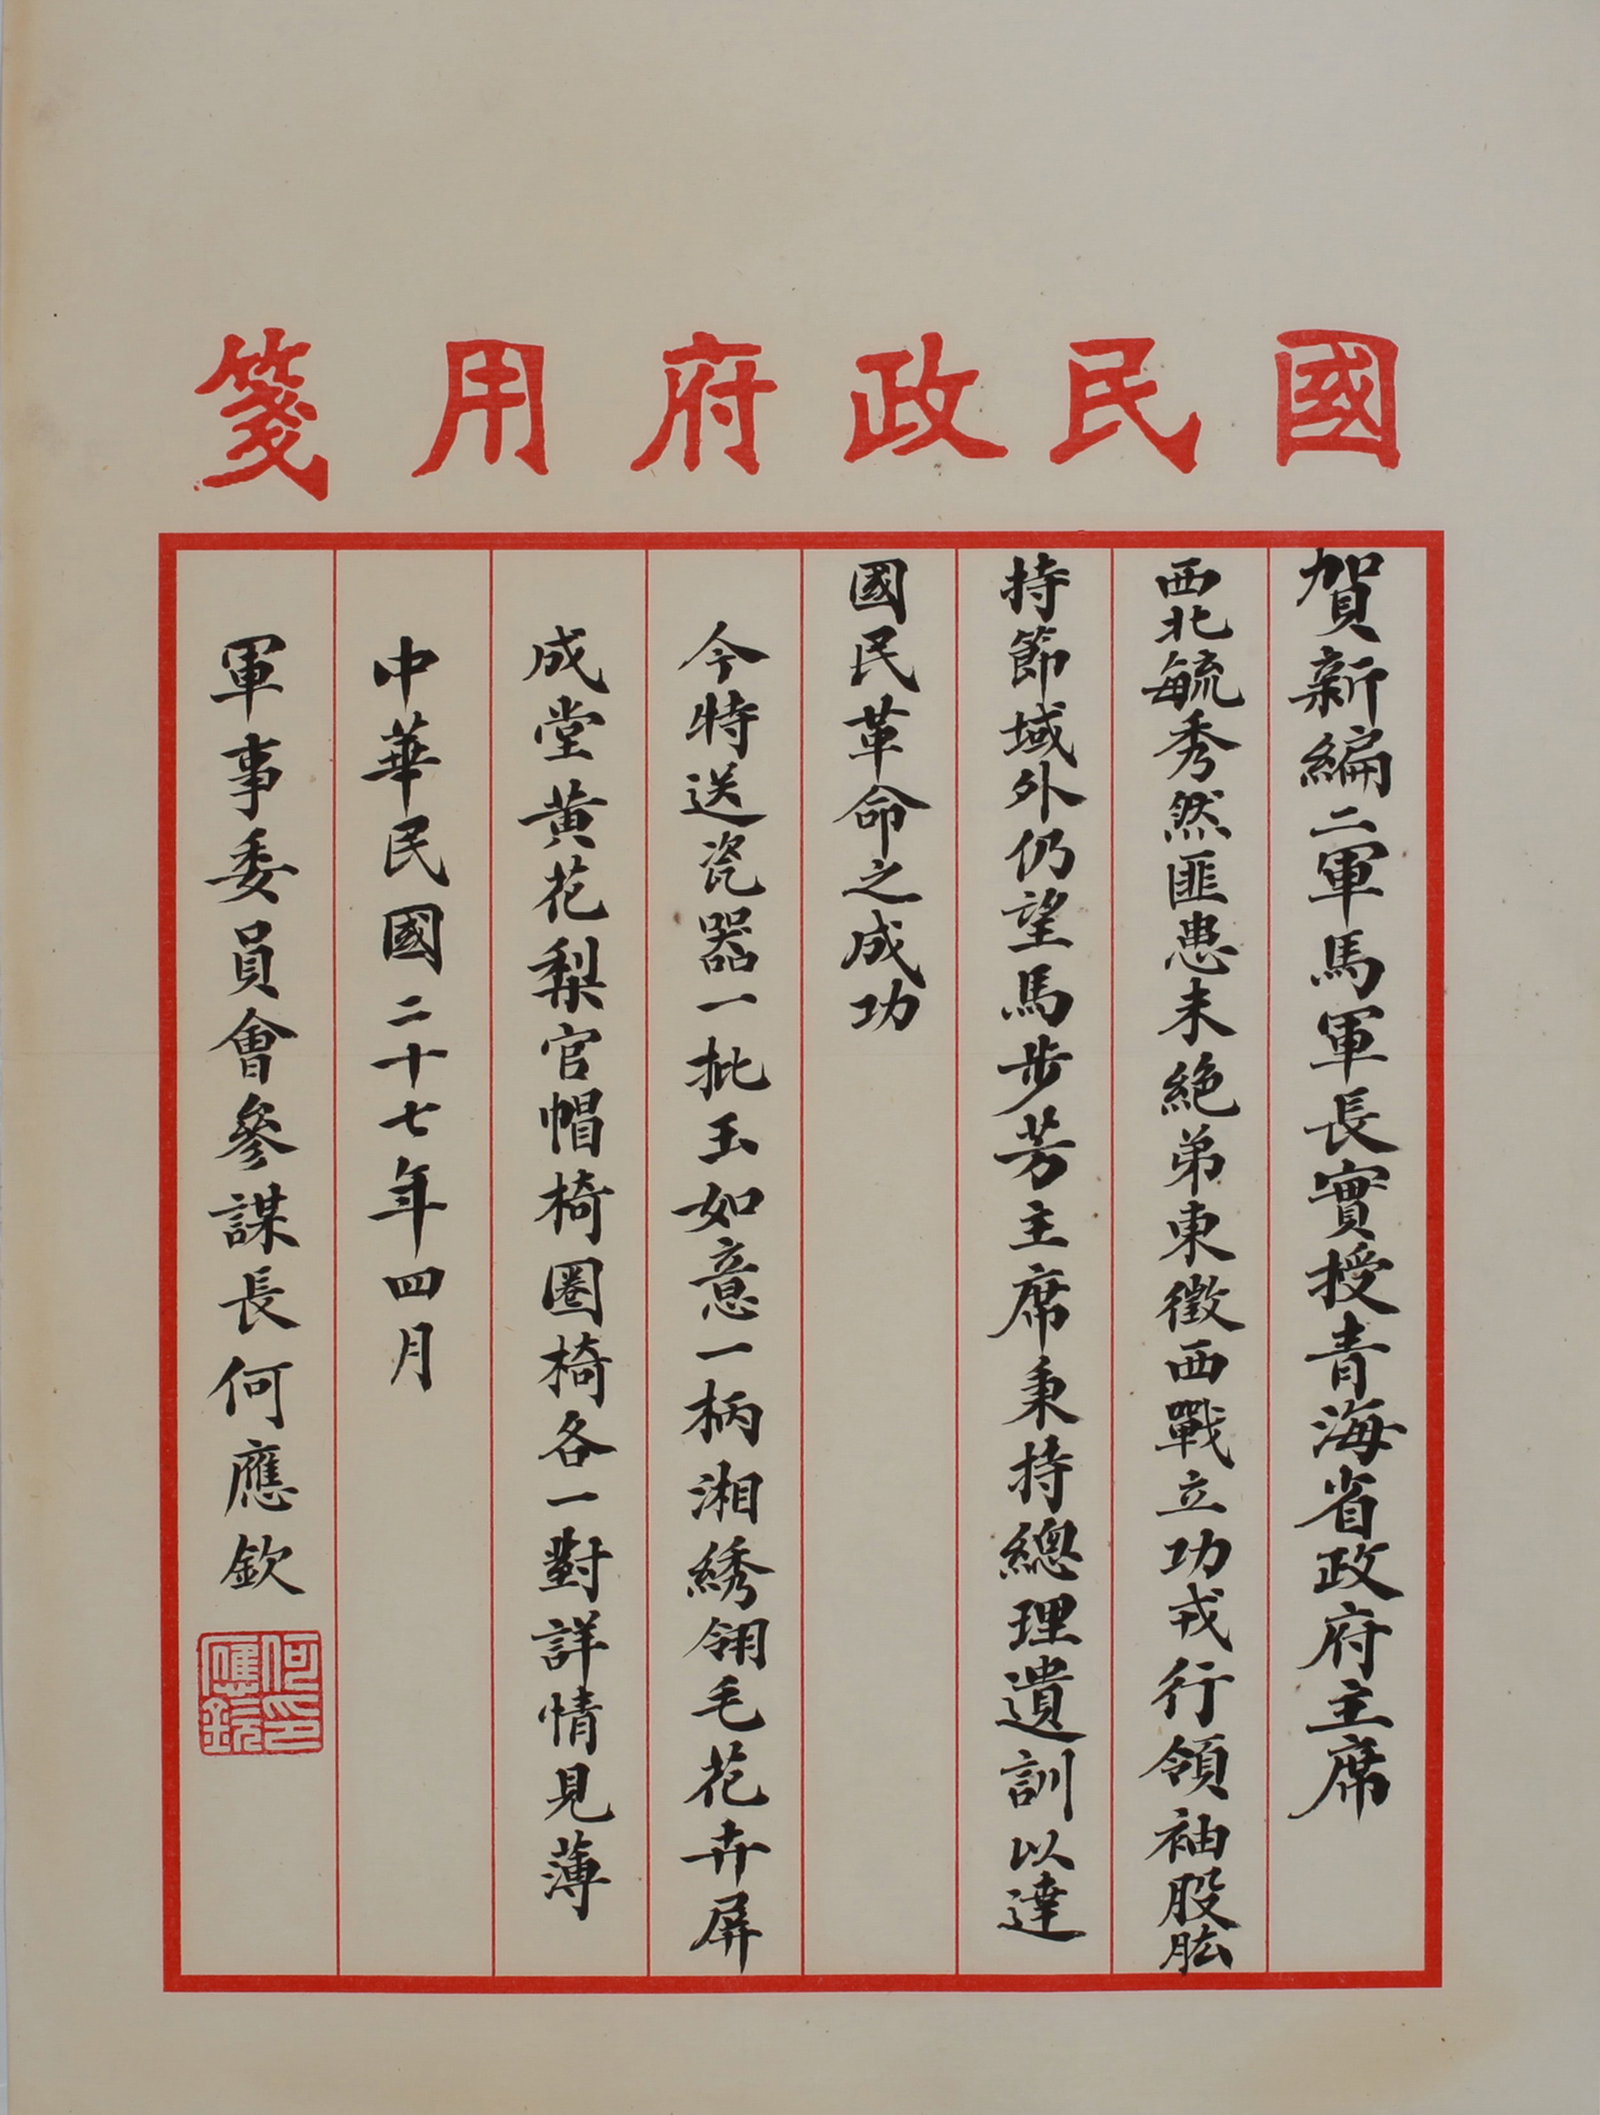 國民政府用箋
賀新編二軍馬軍長實授青海省政府主席
西北毓秀然匪患未絕弟東徵西戰立功戎行領袖股肱
持節域外仍望馬步芳主席秉持總理遺訓以達
國民革命之成功
今特送瓷器一批玉如意一柄湘綉翎毛花卉屏
成堂黄花梨官帽椅圈椅各一對詳情見薄
中華民國二十七年四月
軍事委員會參謀長何應欽
何應欽印